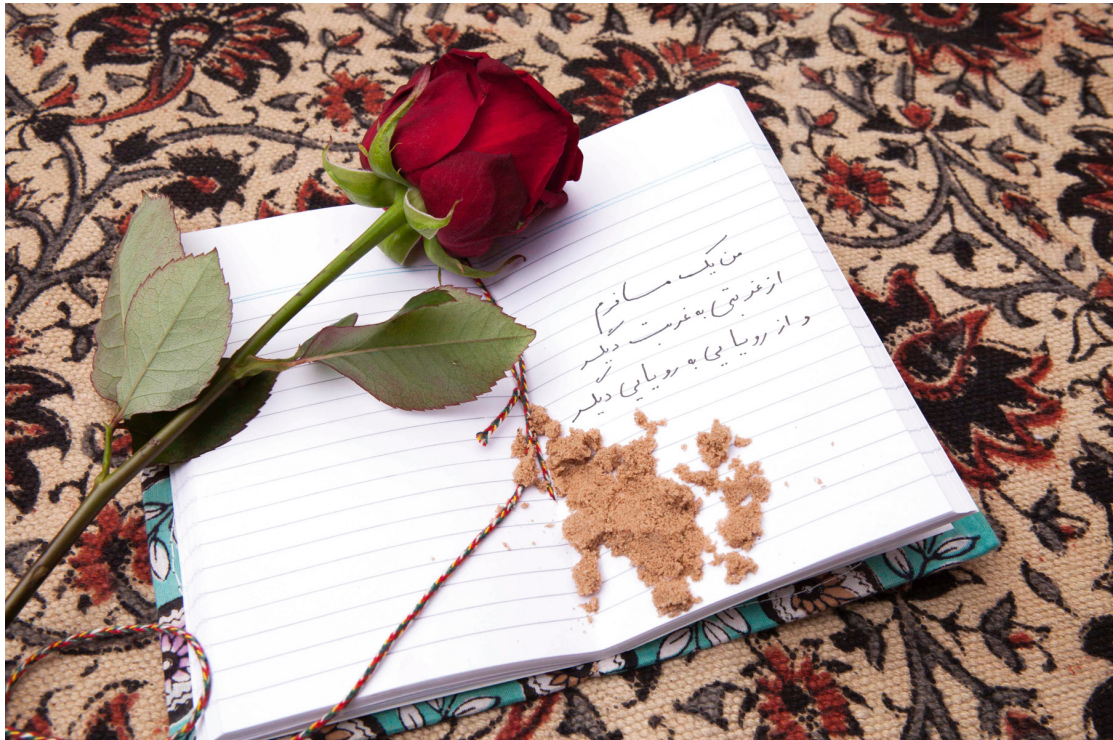 من یک مسافرم
از غربتی به غربت دیگر
و از رویایی به رویایی دیگر